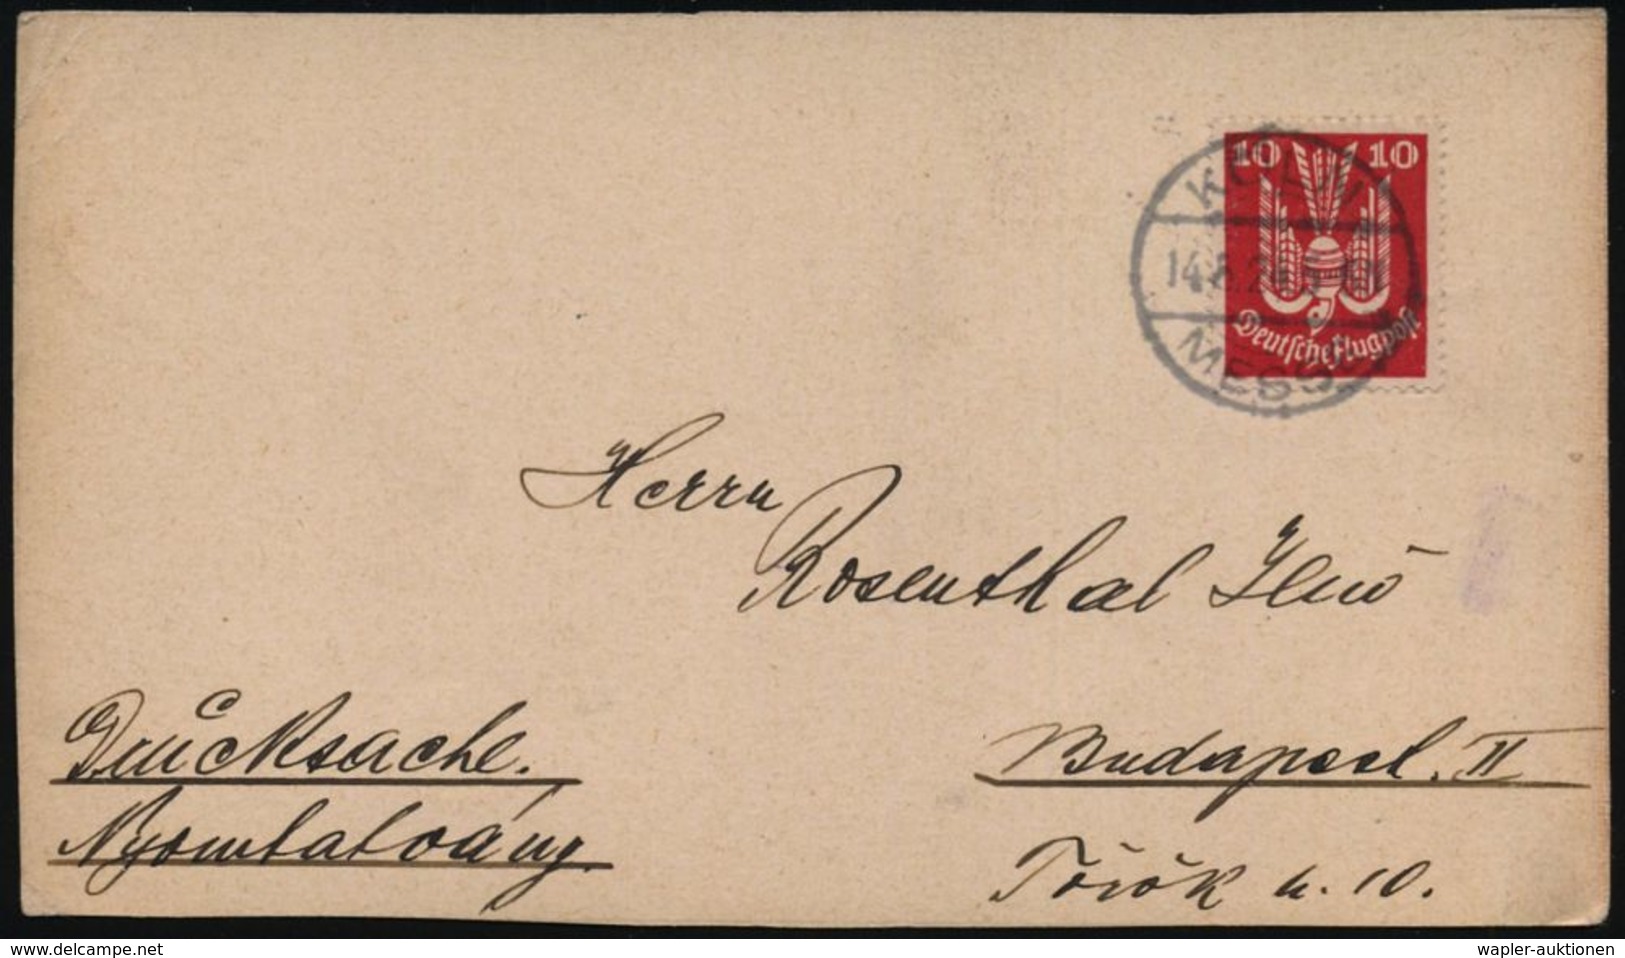 10 10
KÖLN
MESSE
Deutsche Flugpost
Herrn
Rosenthal Jenö
Drucksache.
Nyomtatvány.
Budapest. II
Török u. 10.
www.delcampe.net
wapler-auktionen